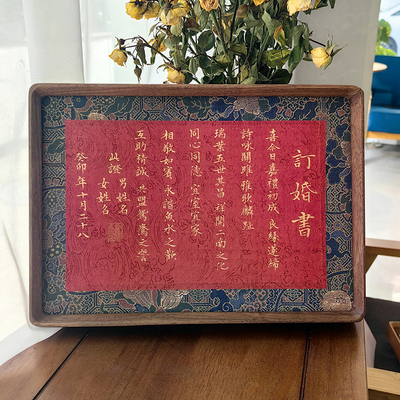 訂婚書
喜今日嘉禮初成 良緣遂締
詩咏關雎 雅歌麟趾
瑞葉五世其昌 祥開二南之化
同心同德 宜室宜家
相敬如賓 永諧魚水之歡
互助精誠 共盟鴛鴦之誓
此證
男姓名
女姓名
癸卯 年十月二十八